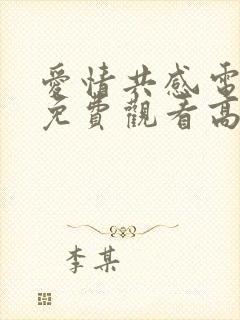 愛情共感電
免費觀看高
李某